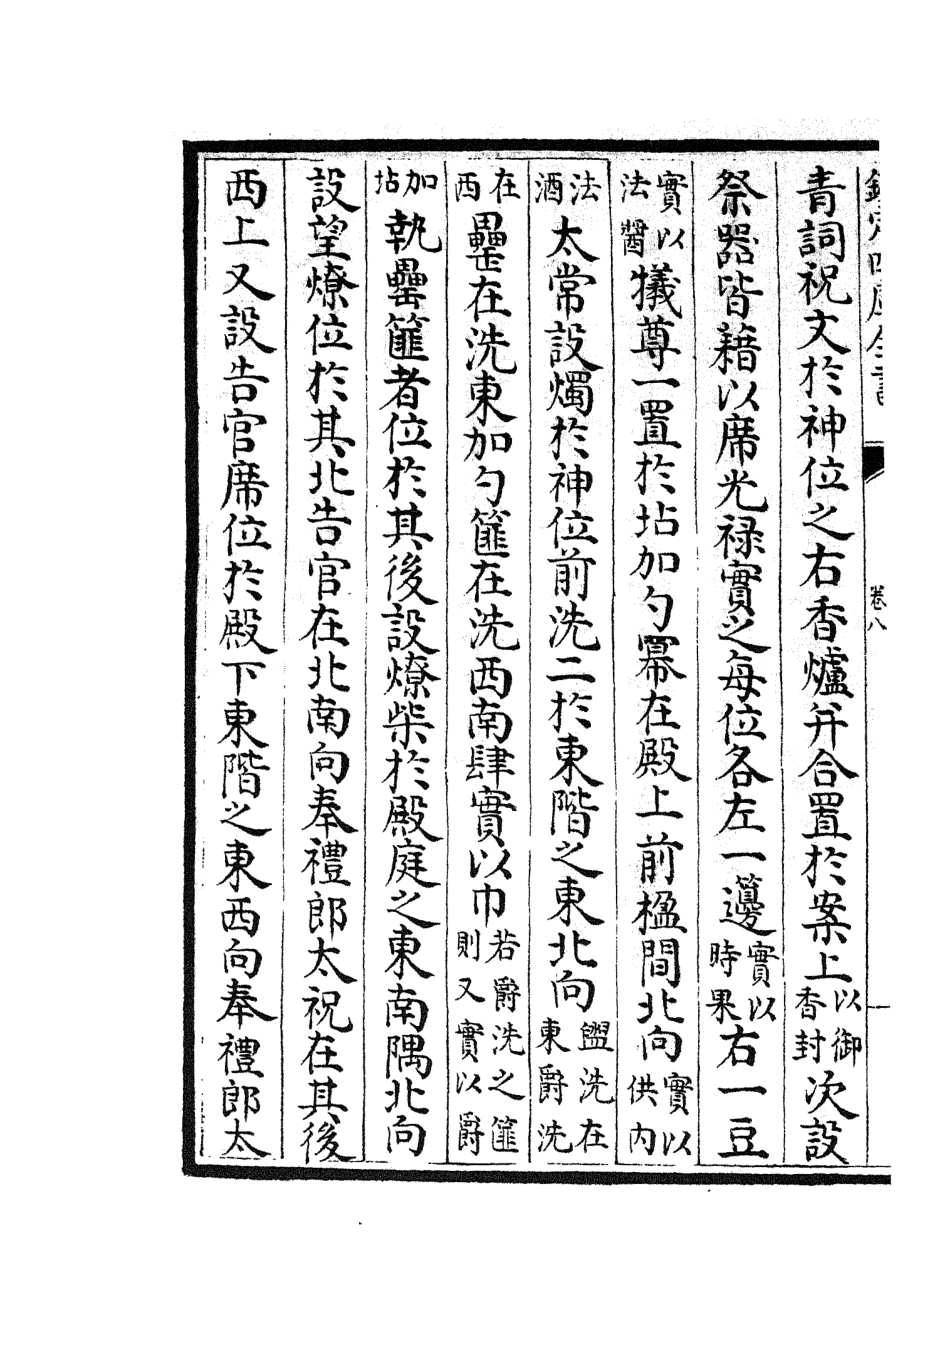 欽定四庫全書
卷八
青詞祝文於神位之右香爐并合置於案上以御香封次設
祭器皆藉以席光禄實之每位各左一籩實以時果右一豆
實以法醤犧尊一置於坫加勺冪在殿上前楹間北向實以供内
法酒太常設燭於神位前洗二於東階之東北向盥洗在東爵洗
在西罍在洗東加勺篚在洗西南肆實以巾若爵洗之篚則又實以爵
加坫執罍篚者位於其後設燎柴於殿庭之東南隅北向
設望燎位於其北告官在北南向奉禮郎太祝在其後
西上又設告官席位於殿下東階之東西向奉禮郎太